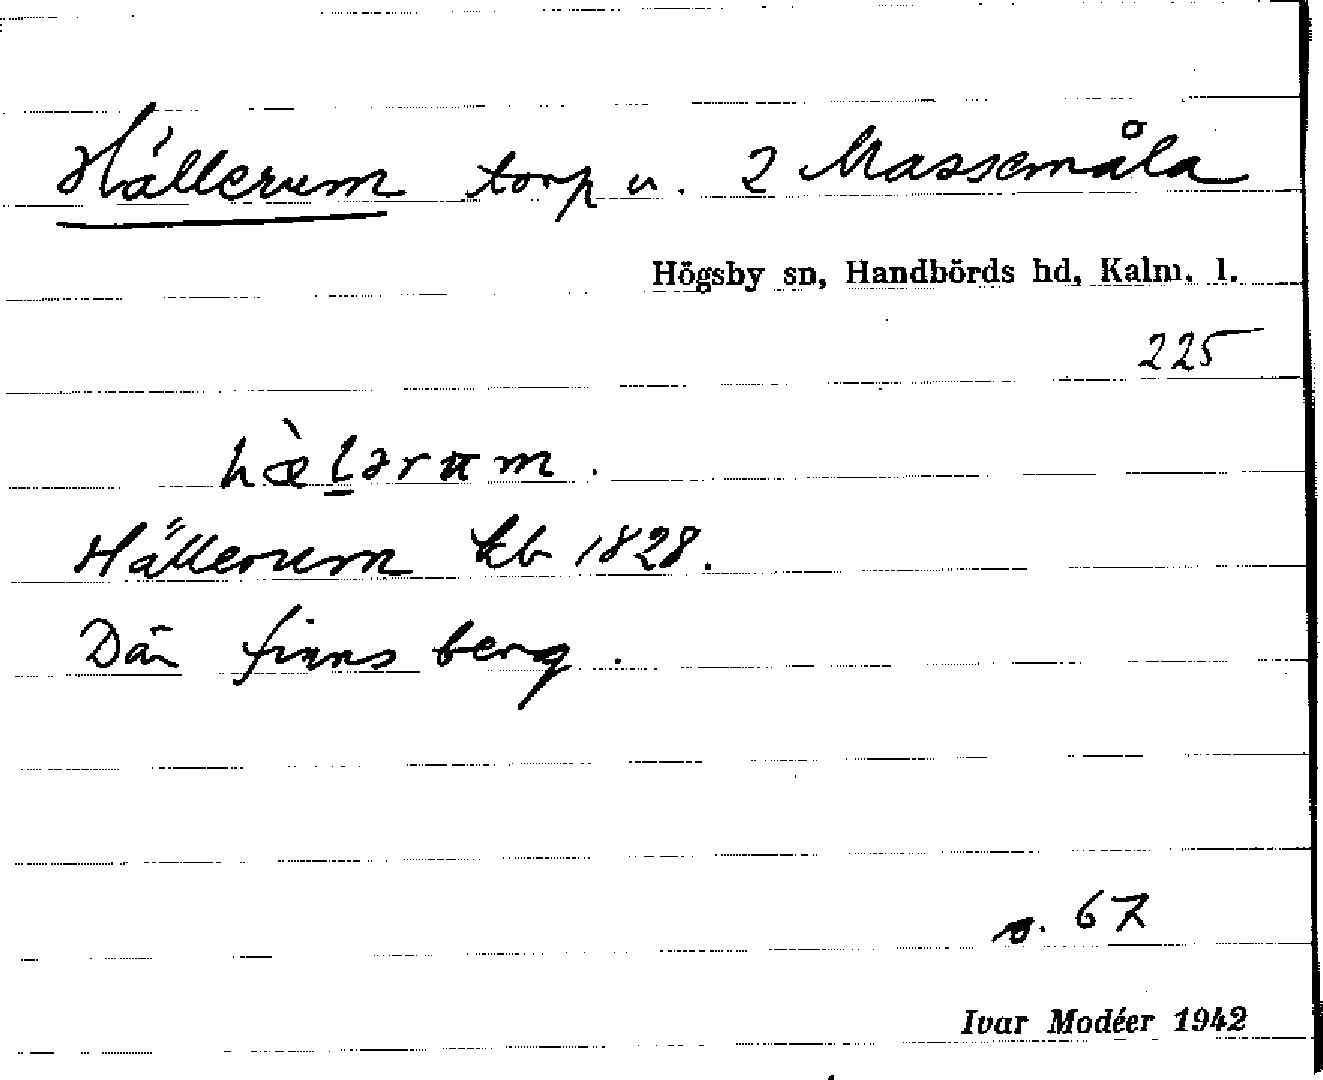 Hällerum torp u. 2 Massemåla
Högsby sn, Handbörds hd, Kalm. l.
225
hæ̀l̲ərum.
Hällerum kb 1828.
Där finns berg.
s. 67
Ivar Modéer 1942